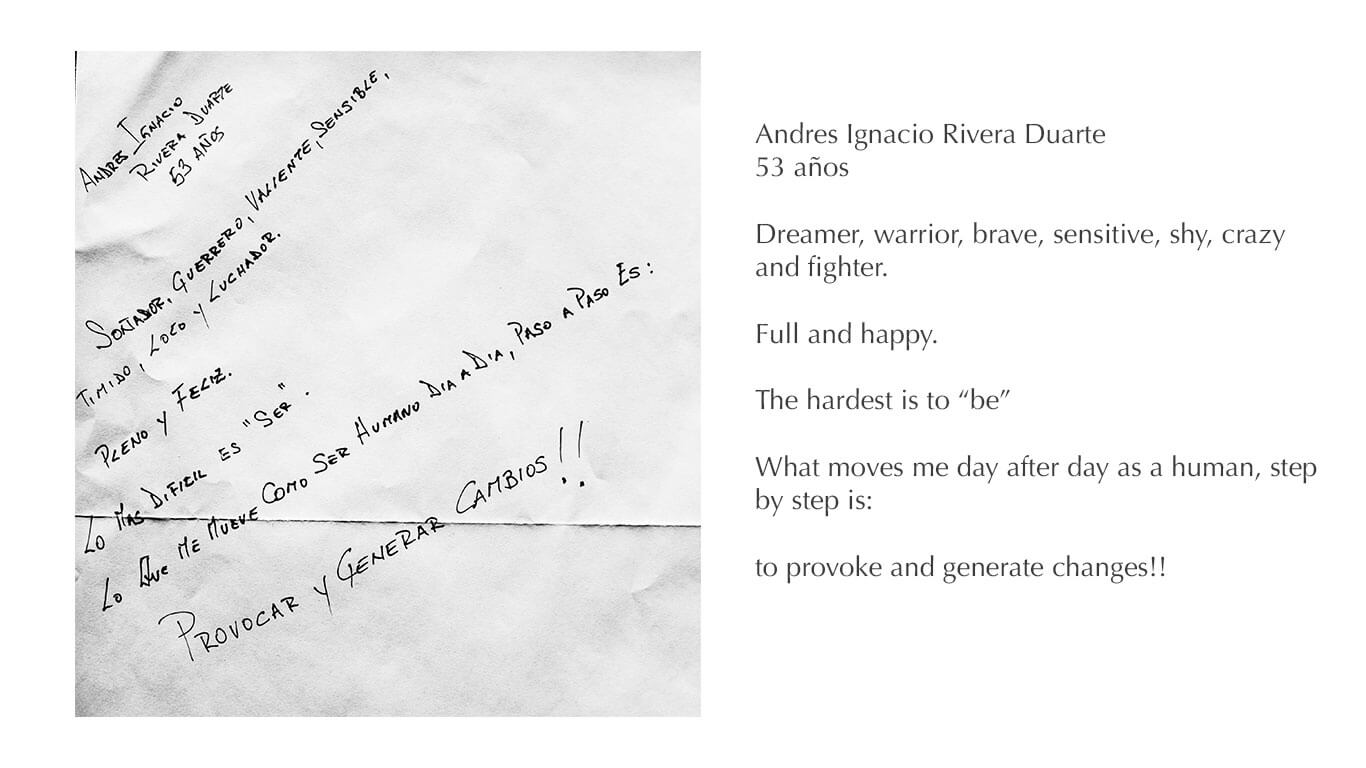 ANDRES IGNACIO
RIVERA DUARTE
53 AÑOS
SOÑADOR, GUERRERO, VALIENTE, SENSIBLE,
TIMIDO, LOCO Y LUCHADOR.
PLENO Y FELIZ.
LO MAS DIFICIL ES "SER".
LO QUE ME MUEVE COMO SER HUMANO DIA A DIA, PASO A PASO ES:
PROVOCAR Y GENERAR CAMBIOS!!
Andres Ignacio Rivera Duarte
53 años
Dreamer, warrior, brave, sensitive, shy, crazy
and fighter.
Full and happy.
The hardest is to “be”
What moves me day after day as a human, step
by step is:
to provoke and generate changes!!